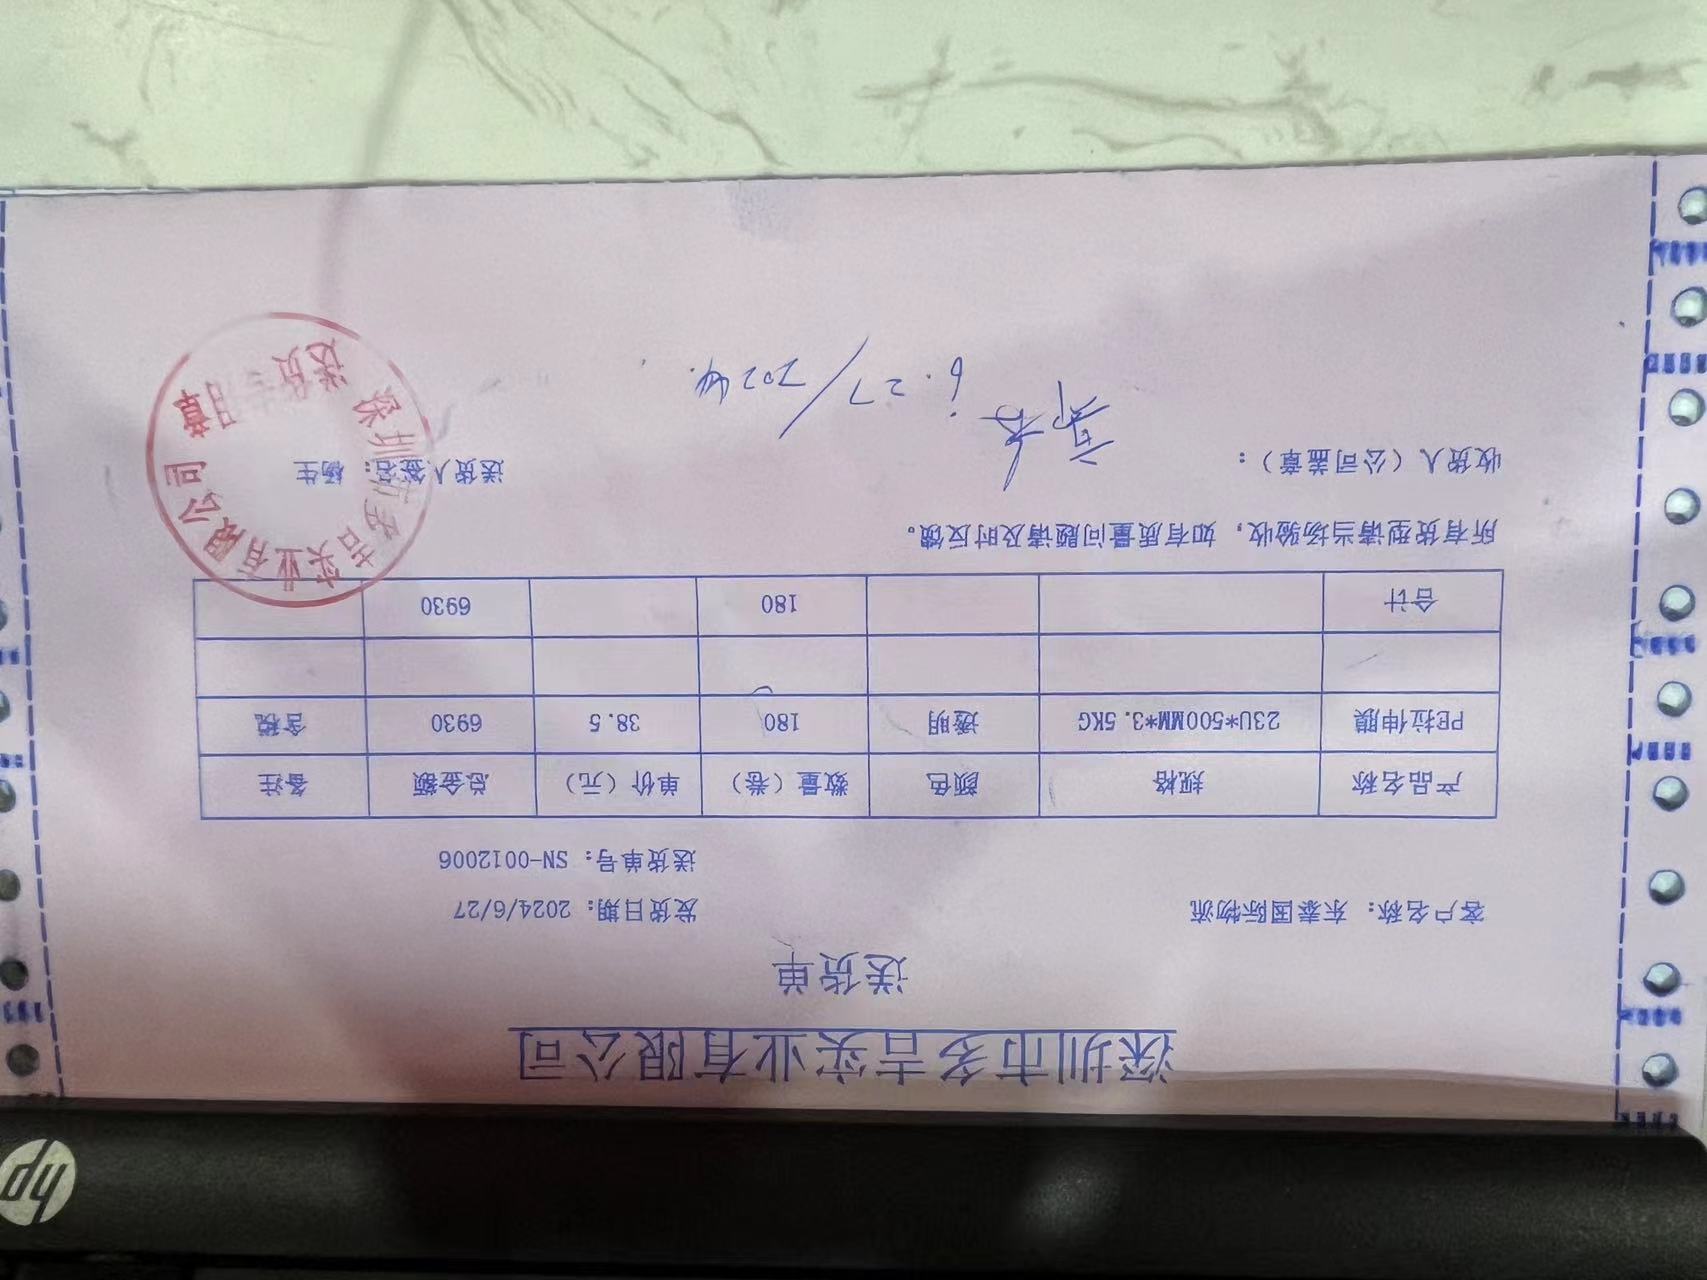 深圳市多吉实业有限公司
送货单
客户名称：东泰国际物流 发货日期：2024/6/27
送货单号：SN-0012006
产品名称 规格 颜色 数量（卷） 单价（元） 总金额 备注
PE拉伸膜 23U*500MM*3.5KG 透明 180 38.5 6930 含税
合计 180 6930
所有货型请当场验收，如有质量问题请及时反馈。
收货人（公司盖章）： 送货人签名：杨生
6.27/2024.
深圳市多吉实业有限公司
送货专用章
hp